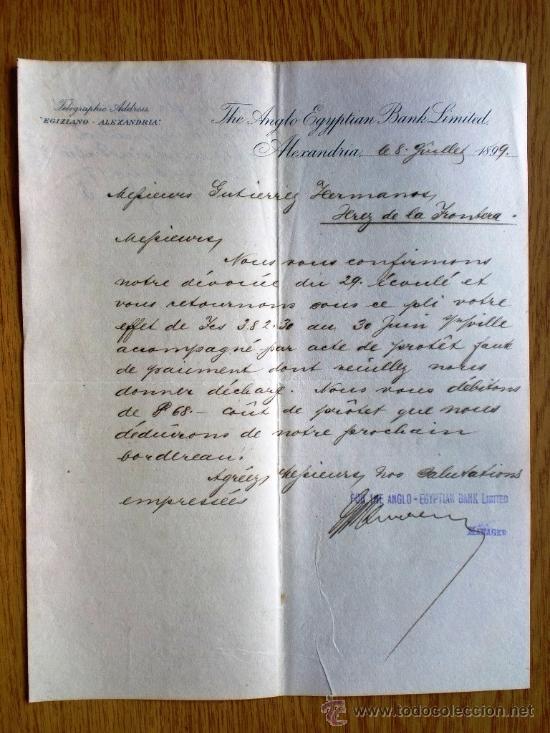 Telegraphic Address
"EGIZIANO - ALEXANDRIA."
The Anglo Egyptian Bank Limited.
Alexandria, le 8 Juillet 1899.
Messieurs Gutierrez Hermanos,
Xerez de la Frontera.
Messieurs,
Nous vous confirmons
notre dévouée du 29 écoulé et
vous retournons sous ce pli votre
effet de Fcs 382.30 au 30 Juin
accompagné par acte de protêt faute
de paiement dont veuillez nous
donner décharge. Nous vous débitons
de 68.- coût de prôtet que nous
déduirons de notre prochain
bordereau.
Agréez, Messieurs, nos salutations
empressées
FOR THE ANGLO-EGYPTIAN BANK LIMITED
MANAGER
www.todocoleccion.net